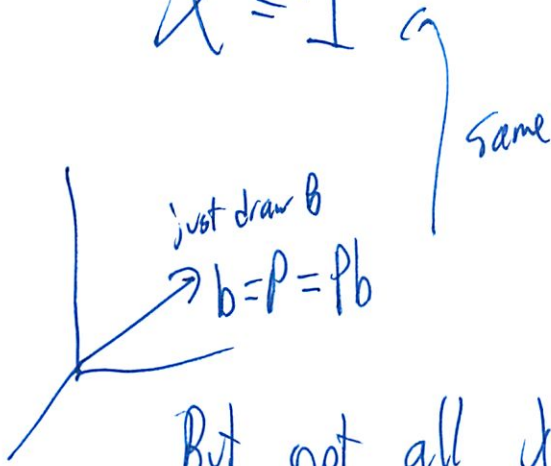 = 1
same
just draw B
b = P = Pb
But not all